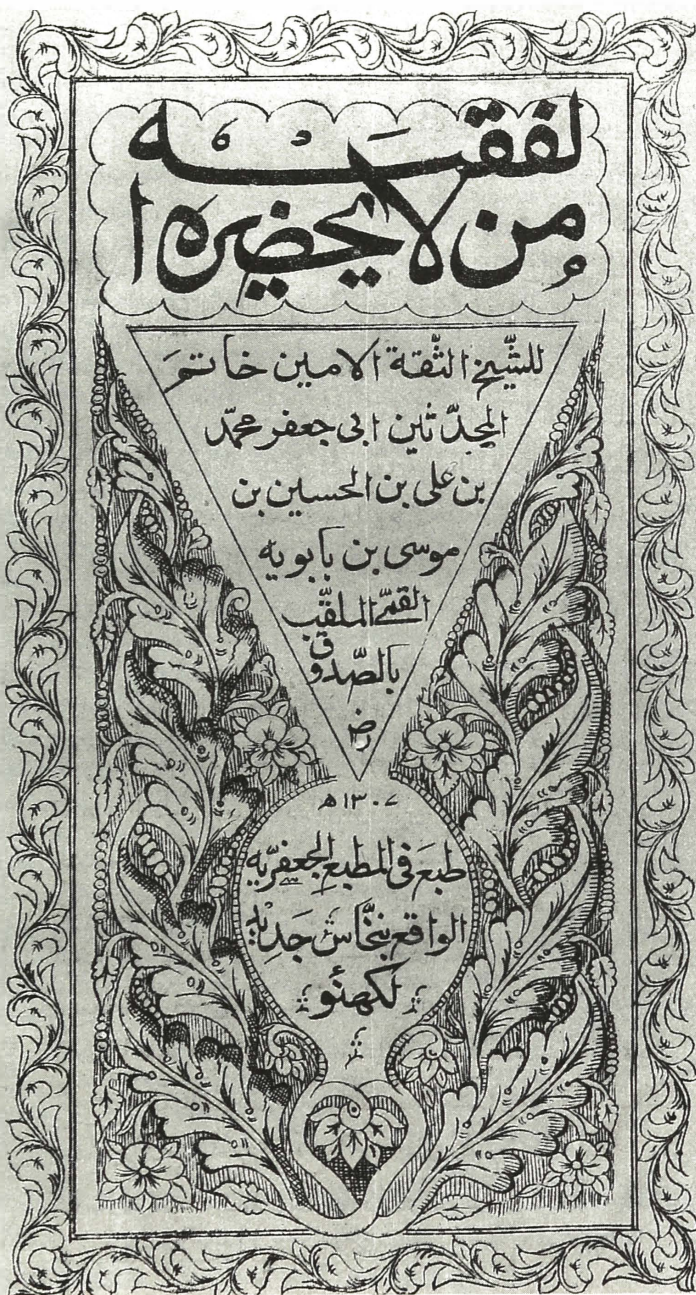 من لا يحضره ا
لفقيه
للشّيخ الثّقة الامين خاتم
المحدّثين ابى جعفر محمّد
بن على بن الحسين بن
موسى بن بابويه
القمّى الملقّب
بالصّدوق
رض
١٣٠٧ھ
طبع فى المطبع الجعفريّه
الواقع بنخّاس جديد
لكهنؤ